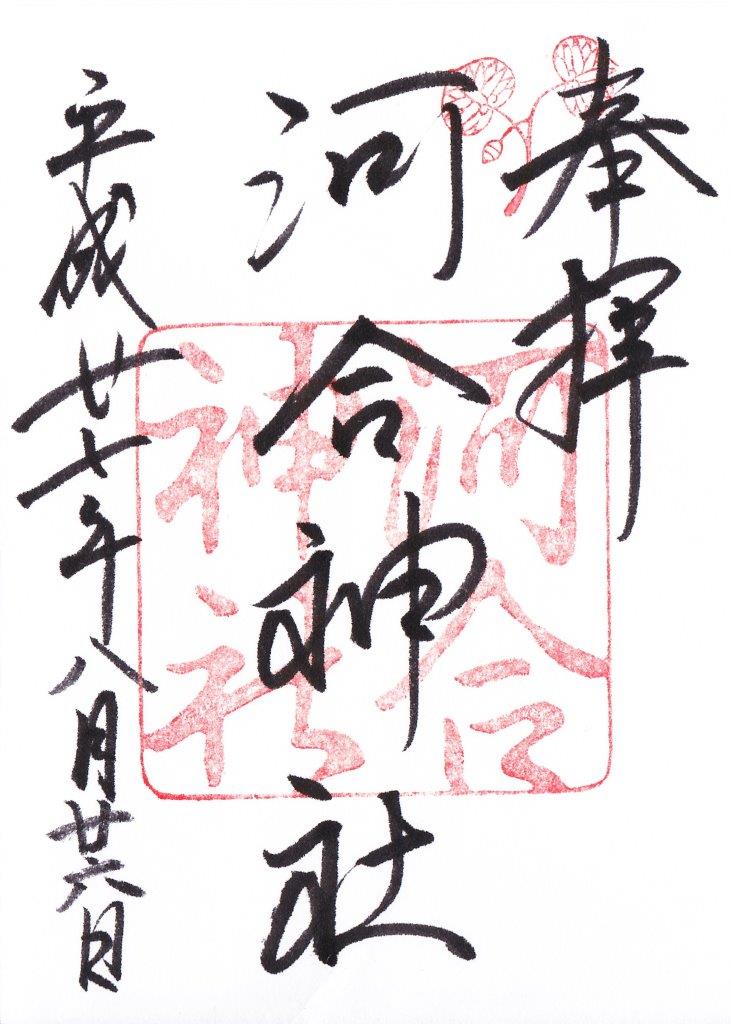 奉拝
河合神社
河合神社
平成廿七年八月廿六日